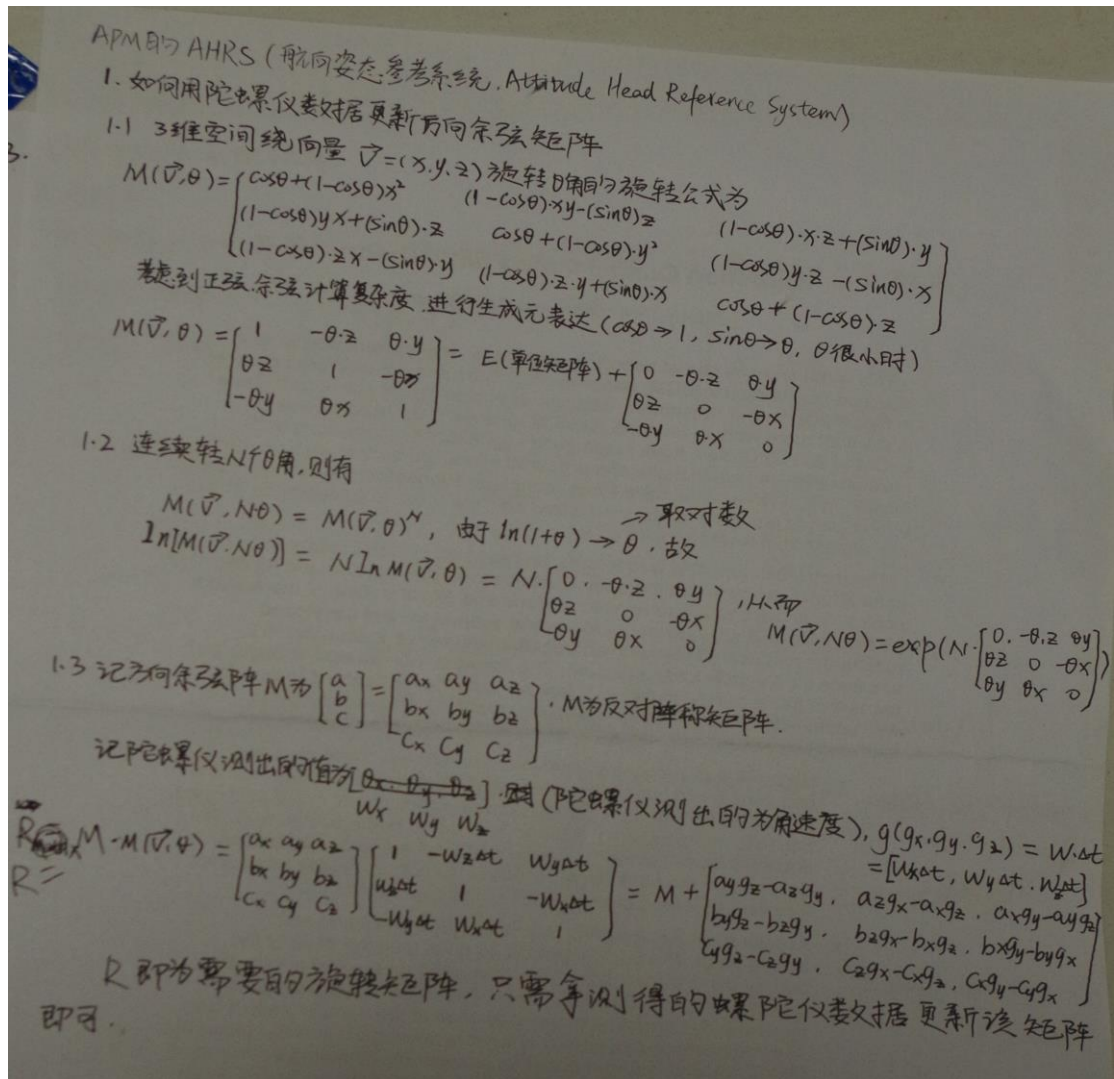 APM的 AHRS (航向姿态参考系统, Attitude Head Reference System)
1. 如何用陀螺仪数据更新方向余弦矩阵
1.1 3维空间绕向量 V⃗=(x,y,z) 旋转θ角的旋转公式为
M(V⃗,θ)=[cosθ+(1-cosθ)x² (1-cosθ)·xy-(sinθ)z (1-cosθ)·x·z+(sinθ)·y
(1-cosθ)yx+(sinθ)·z cosθ+(1-cosθ)·y² (1-cosθ)y·z-(sinθ)·x
(1-cosθ)·zx-(sinθ)·y (1-cosθ)·z·y+(sinθ)·x cosθ+(1-cosθ)·z]
考虑到正弦.余弦计算复杂度.进行生成元表达(cosθ→1, sinθ→θ, θ很小时)
M(V⃗,θ)=[1 -θ·z θ·y = E(单位矩阵)+[0 -θ·z θ·y
θz 1 -θx θz 0 -θx
-θy θx 1] -θy θ·x 0]
1.2 连续转N个θ角,则有
M(V⃗,Nθ) = M(V⃗,θ)^N, 由于 ln(1+θ)→θ, 故 →取对数
ln[M(V⃗.Nθ)] = N ln M(V⃗,θ) = N·[0. -θ·z. θy ,从而
θz 0 -θx
-θy θx 0] M(V⃗,Nθ)=exp(N·[0. -θ.z θy
θz 0 -θx
θy θx 0])
1.3 记方向余弦阵M为[a b c]=[ax ay az
bx by bz
cx cy cz]. M为反对阵称矩阵.
记陀螺仪测出的值为[θx. θy. θz]. (陀螺仪测出的为角速度), g(gx.gy.gz) = W·Δt
Wx Wy Wz =[WxΔt, WyΔt. WzΔt]
R M·M(V⃗,θ) = [ax ay az [1 -WzΔt WyΔt = M+[aygz-azgy. azgx-axgz. axgy-aygz
R= bx by bz wzΔt 1 -WxΔt bygz-bzgy. bzgx-bxgz. bxgy-bygx
cx cy cz] -WyΔt WxΔt 1] cygz-czgy. czgx-cxgz. cxgy-cygx]
R即为需要的旋转矩阵, 只需拿测得的螺陀仪数据更新该矩阵
即可.